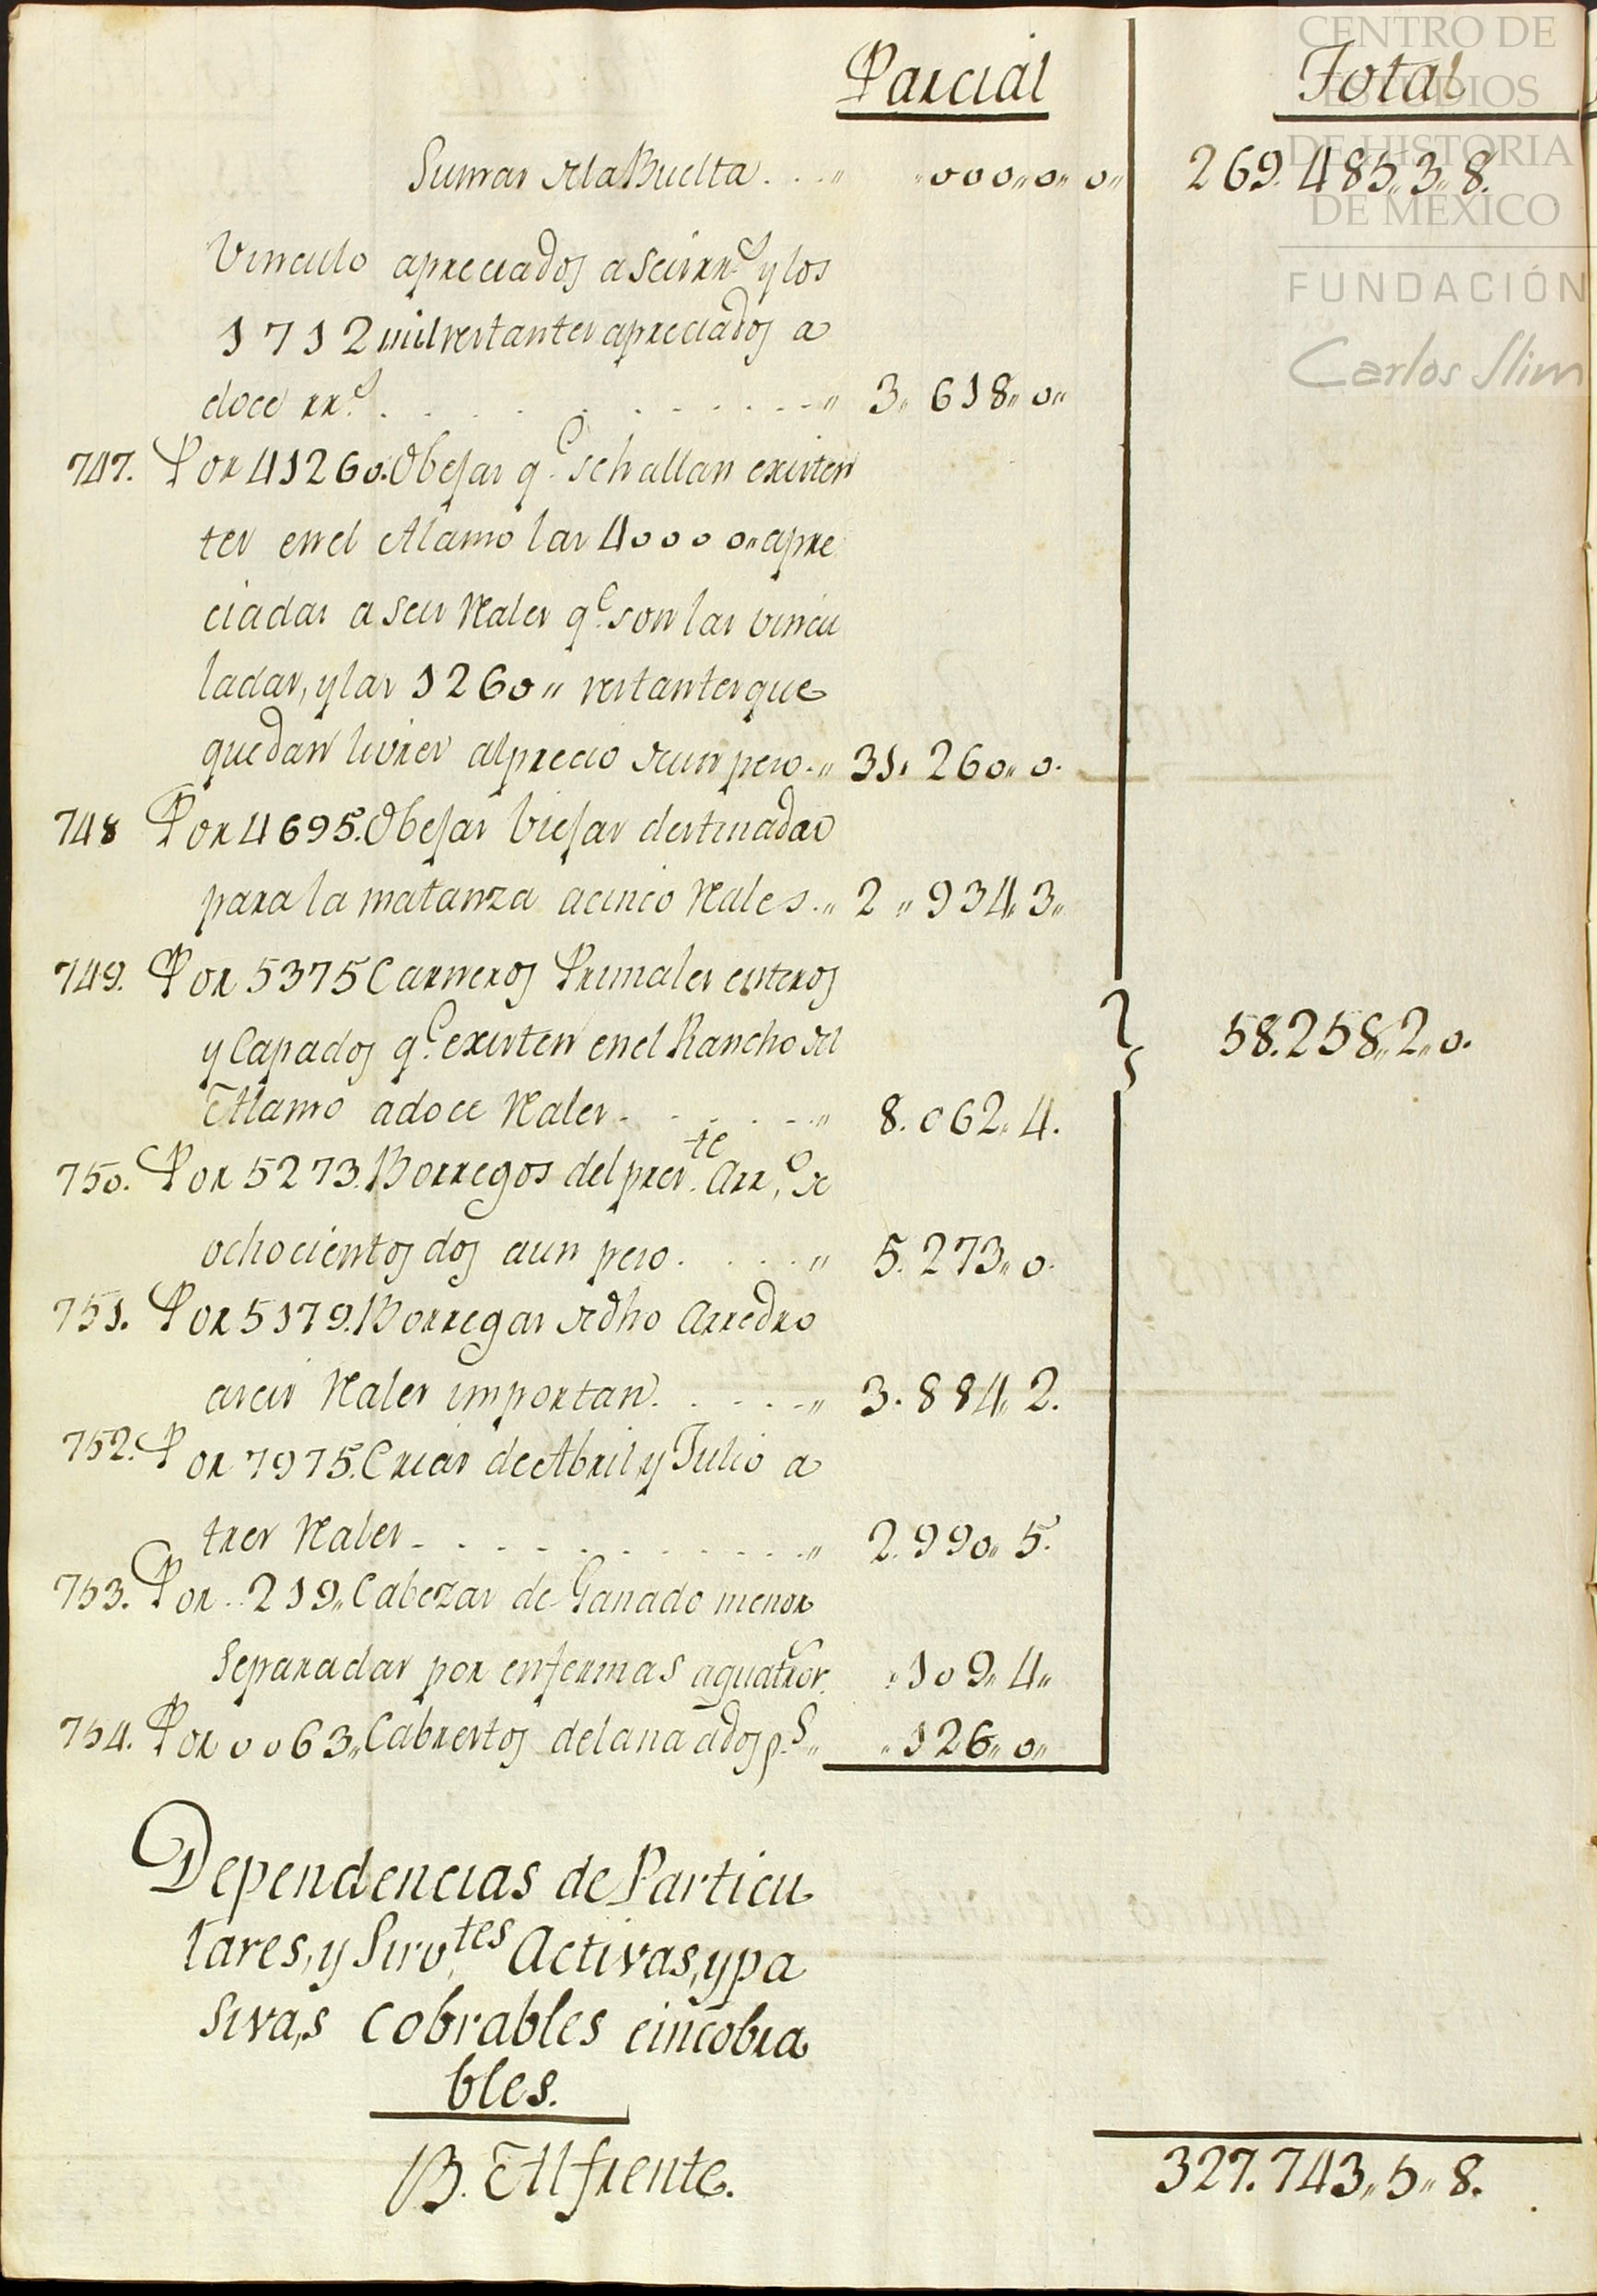 Parcial Total
Sumas de la Buelta . . . „ „000„0„ 0„ 269.485„3„8.
Vinculo apreciados a seis rr.s y los
1712 mil restantes apreciados a
doce rr.s . . . . . . . . . . „ 3„ 618„ 0„
747. Por 41260. Obejas q.e se hallan existen
tes en el Alamo las 40000„ apre
ciadas a seis Reales q.e son las vincu
ladas, y las 1260„ restantes que
quedan livres al precio de un peso. „ 31. 260„ 0.
748 Por 4695. Obejas Viejas destinadas
para la matanza a cinco Reales. „ 2„ 934„ 3„
749. Por 5375 Carneros Primales enteros
y Capados q.e existen en el Rancho del
Alamo a doce Reales . . . . . „ 8. 062„ 4. 58.258„2„0.
750. Por 5273. Borregos del pres.te Arr.o de
ochocientos dos a un peso . . . . „ 5. 273„ 0.
751. Por 5179. Borregas de dho Arredro
a seis Reales importan . . . . . „ 3. 884„ 2.
752. Por 7975. Crias de Abril, y Julio a
tres Reales . . . . . . . . . . „ 2. 990„ 5.
753. Por . . 219„ Cabezas de Ganado menor
Separadas por enfermas a quatro r.s „109„ 4„
754. Por 0063„ Cabrestos de lana a dos p.s „ „126„ 0„
Dependencias de Particu
lares, y Sirv.tes Activas, y pa
sivas, cobrables e incobra
bles.
B. Al frente. 327.743„5„8.
CENTRO DE
ESTUDIOS
DE HISTORIA
DE MÉXICO
FUNDACIÓN
Carlos Slim